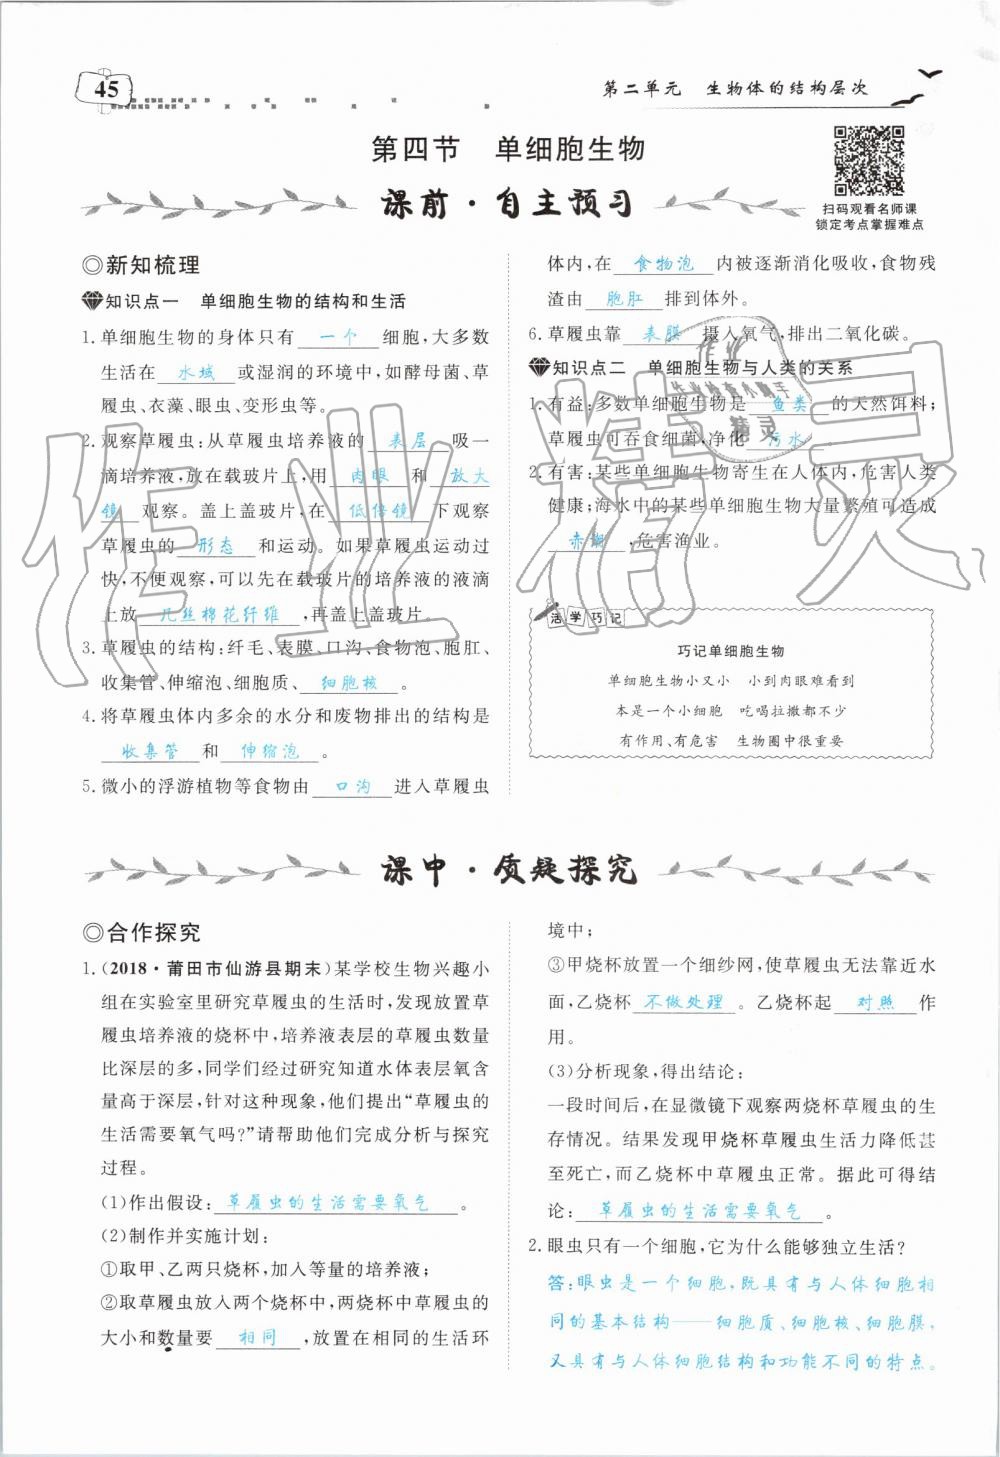 45
第二单元 生物体的结构层次
第四节 单细胞生物
课前·自主预习
扫码观看名师课
锁定考点掌握难点
◎新知梳理
知识点一 单细胞生物的结构和生活
1.单细胞生物的身体只有 一个 细胞,大多数
生活在 水域 或湿润的环境中,如酵母菌、草
履虫、衣藻、眼虫、变形虫等。
2.观察草履虫:从草履虫培养液的 表层 吸一
滴培养液,放在载玻片上,用 肉眼 和 放大
镜 观察。盖上盖玻片,在 低倍镜 下观察
草履虫的 形态 和运动。如果草履虫运动过
快,不便观察,可以先在载玻片的培养液的液滴
上放 几丝棉花纤维 ,再盖上盖玻片。
3.草履虫的结构:纤毛、表膜、口沟、食物泡、胞肛、
收集管、伸缩泡、细胞质、 细胞核 。
4.将草履虫体内多余的水分和废物排出的结构是
收集管 和 伸缩泡 。
5.微小的浮游植物等食物由 口沟 进入草履虫
体内,在 食物泡 内被逐渐消化吸收,食物残
渣由 胞肛 排到体外。
6.草履虫靠 表膜 摄入氧气,排出二氧化碳。
知识点二 单细胞生物与人类的关系
1.有益:多数单细胞生物是 鱼类 的天然饵料;
草履虫可吞食细菌,净化 污水 。
2.有害:某些单细胞生物寄生在人体内,危害人类
健康;海水中的某些单细胞生物大量繁殖可造成
赤潮 ,危害渔业。
活学巧记
巧记单细胞生物
单细胞生物小又小 小到肉眼难看到
本是一个小细胞 吃喝拉撒都不少
有作用、有危害 生物圈中很重要
作业精灵
课中·质疑探究
◎合作探究
1.(2018·莆田市仙游县期末)某学校生物兴趣小
组在实验室里研究草履虫的生活时,发现放置草
履虫培养液的烧杯中,培养液表层的草履虫数量
比深层的多,同学们经过研究知道水体表层氧含
量高于深层,针对这种现象,他们提出“草履虫的
生活需要氧气吗?”请帮助他们完成分析与探究
过程。
(1)作出假设: 草履虫的生活需要氧气 。
(2)制作并实施计划:
①取甲、乙两只烧杯,加入等量的培养液;
②取草履虫放入两个烧杯中,两烧杯中草履虫的
大小和数量要 相同 ,放置在相同的生活环
境中;
③甲烧杯放置一个细纱网,使草履虫无法靠近水
面,乙烧杯 不做处理 。乙烧杯起 对照 作
用。
(3)分析现象,得出结论:
一段时间后,在显微镜下观察两烧杯草履虫的生
存情况。结果发现甲烧杯草履虫生活力降低甚
至死亡,而乙烧杯中草履虫正常。据此可得结
论: 草履虫的生活需要氧气 。
2.眼虫只有一个细胞,它为什么能够独立生活?
答:眼虫是一个细胞,既具有与人体细胞相
同的基本结构——细胞质、细胞核、细胞膜,
又具有与人体细胞结构和功能不同的特点。